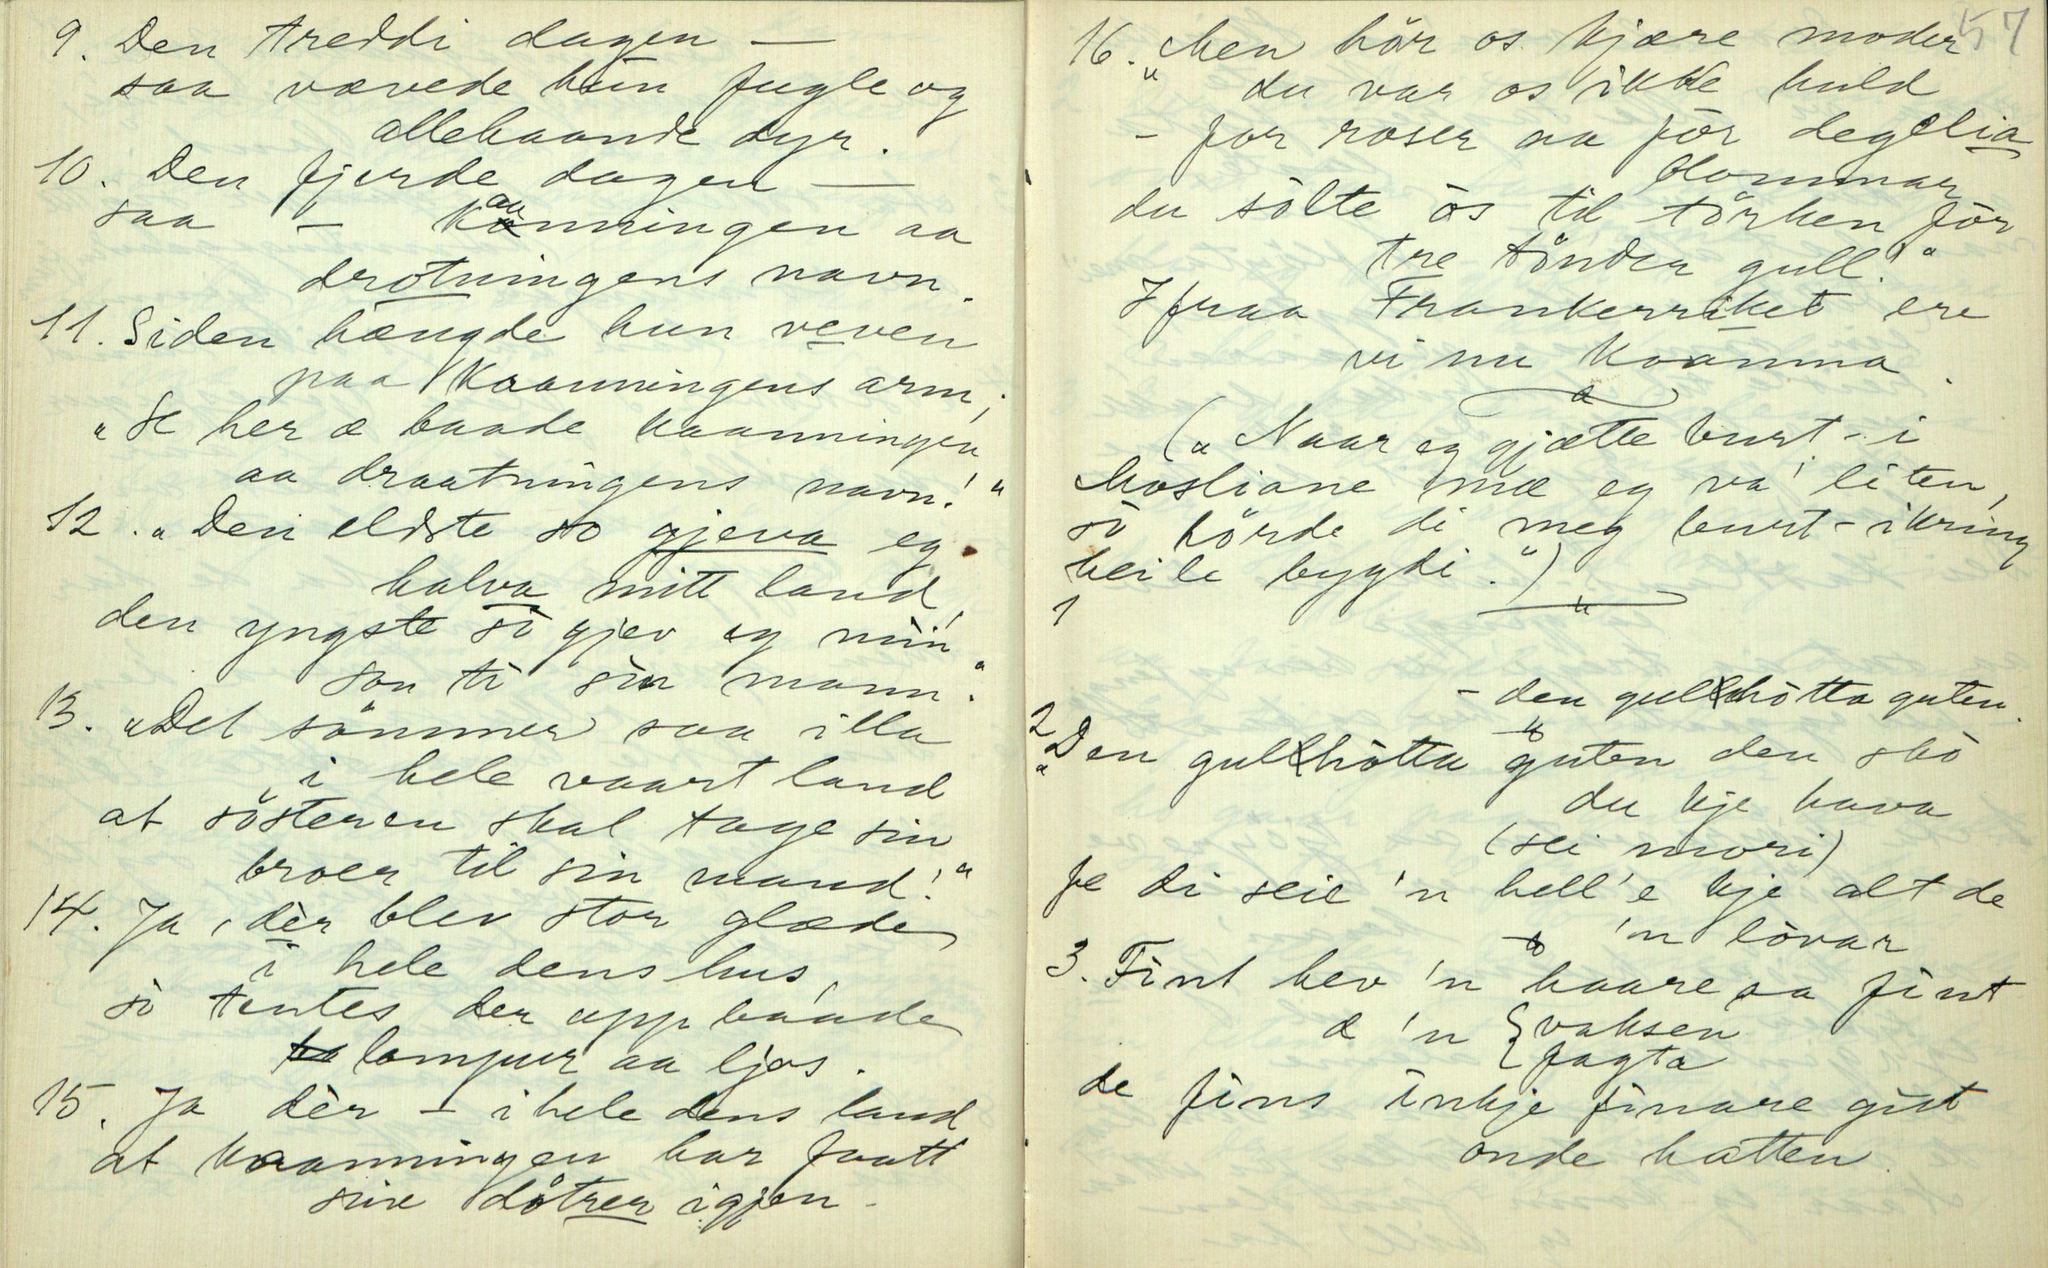 9. Den treddi dagen —
saa vævede hun fugle og
allehaande dyr.
10. Den fjerde dagen —
saa — kaanningen aa
drotningens navn.
11. Siden hængde hun veven
paa kaanningens arm;
"Se her æ baade kaanningen
aa draatningens navn!"
12. "Den eldste so gjeva eg
halva mitt land,
den yngste so gjev eg min
son ti sin mann."
13. "Det sömmer saa illa
i hele vaart land
at sösteren skal tage sin
broer til sin mand!"
14. Ja, dèr blev stor glæde
i hele dens hus,
so tentes der upp baade
lampur aa ljos.
15. Ja dèr — i hele dens land
at kaanningen har faatt
sine döttrer igjen —
57
16. "Men hör os kjære moder
du var os ikke huld
— for roser aa för degelia
blommar
du sölte os til törken för
tre tönder gull!"
Ifraa Frankerriket ere
vi nu koanma.
("Naar eg gjætte burt-i
Mosliane mæ eg va' liten,
so hörde di meg burt-ikring
heile bygdi.")
1
— den gullhötta guten.
2 "Den gullhötta guten den sko
du kje hava
(sei mori)
fe di seie 'n hell'e kje alt de
'n lovar
3. Fint hev 'n haare aa fint
æ 'n { vaksen
{ fagta
de fins inkje finare gut
onde hatten.